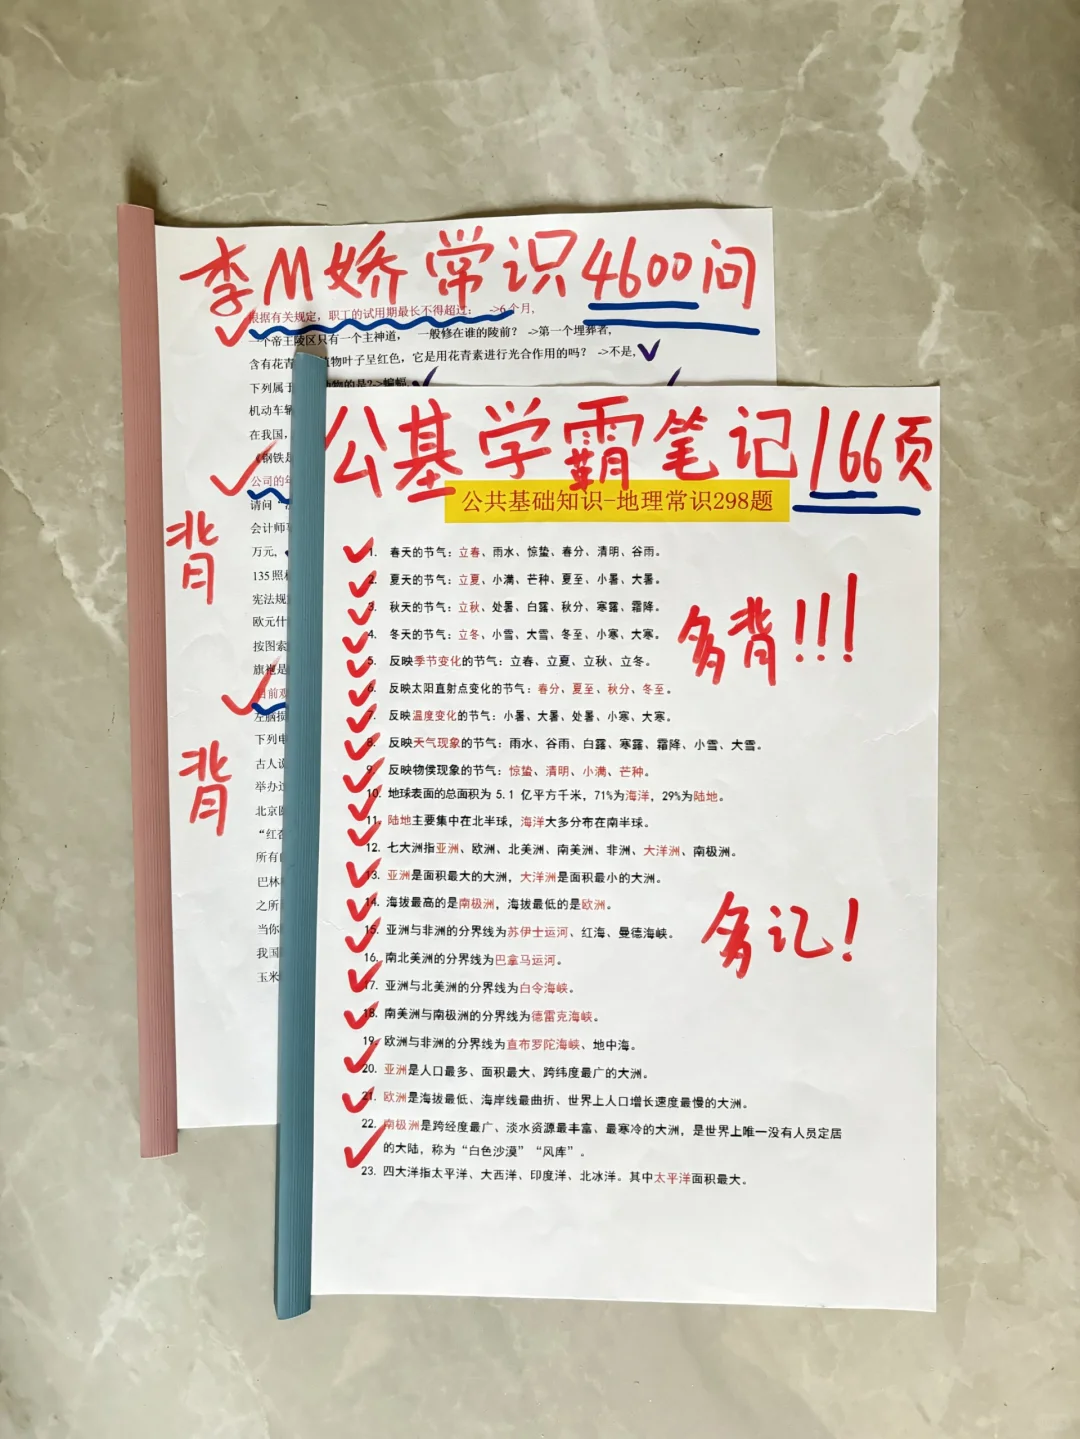 李M娇常识4600问
根据有关规定，职工的试用期最长不得超过： ->6个月,
一个帝王陵区只有一个主神道， 一般修在谁的陵前？ ->第一个埋葬者,
含有花青 植物叶子呈红色，它是用花青素进行光合作用的吗？ ->不是,
下列属于 动物的是?->蝙蝠,
机动车辆
在我国，
《钢铁是
公司的年
请问“
会计师事
万元,
135照相
宪法规
欧元什
按图索
旗袍是
目前观
左脑损
下列电
古人说
举办过
北京医
“红杏
所有的
巴林
之所
当你
我国
玉米
背
背
公基学霸笔记166页
公共基础知识-地理常识298题
1. 春天的节气：立春、雨水、惊蛰、春分、清明、谷雨。
2. 夏天的节气：立夏、小满、芒种、夏至、小暑、大暑。
3. 秋天的节气：立秋、处暑、白露、秋分、寒露、霜降。
4. 冬天的节气：立冬、小雪、大雪、冬至、小寒、大寒。
5. 反映季节变化的节气：立春、立夏、立秋、立冬。
6. 反映太阳直射点变化的节气：春分、夏至、秋分、冬至。
7. 反映温度变化的节气：小暑、大暑、处暑、小寒、大寒。
8. 反映天气现象的节气：雨水、谷雨、白露、寒露、霜降、小雪、大雪。
9. 反映物侯现象的节气：惊蛰、清明、小满、芒种。
10. 地球表面的总面积为 5.1 亿平方千米，71%为海洋，29%为陆地。
11. 陆地主要集中在北半球，海洋大多分布在南半球。
12. 七大洲指亚洲、欧洲、北美洲、南美洲、非洲、大洋洲、南极洲。
13. 亚洲是面积最大的大洲，大洋洲是面积最小的大洲。
14. 海拔最高的是南极洲，海拔最低的是欧洲。
15. 亚洲与非洲的分界线为苏伊士运河、红海、曼德海峡。
16. 南北美洲的分界线为巴拿马运河。
17. 亚洲与北美洲的分界线为白令海峡。
18. 南美洲与南极洲的分界线为德雷克海峡。
19. 欧洲与非洲的分界线为直布罗陀海峡、地中海。
20. 亚洲是人口最多、面积最大、跨纬度最广的大洲。
21. 欧洲是海拔最低、海岸线最曲折、世界上人口增长速度最慢的大洲。
22. 南极洲是跨经度最广、淡水资源最丰富、最寒冷的大洲，是世界上唯一没有人员定居
的大陆，称为“白色沙漠”“风库”。
23. 四大洋指太平洋、大西洋、印度洋、北冰洋。其中太平洋面积最大。
多背!!!
多记!